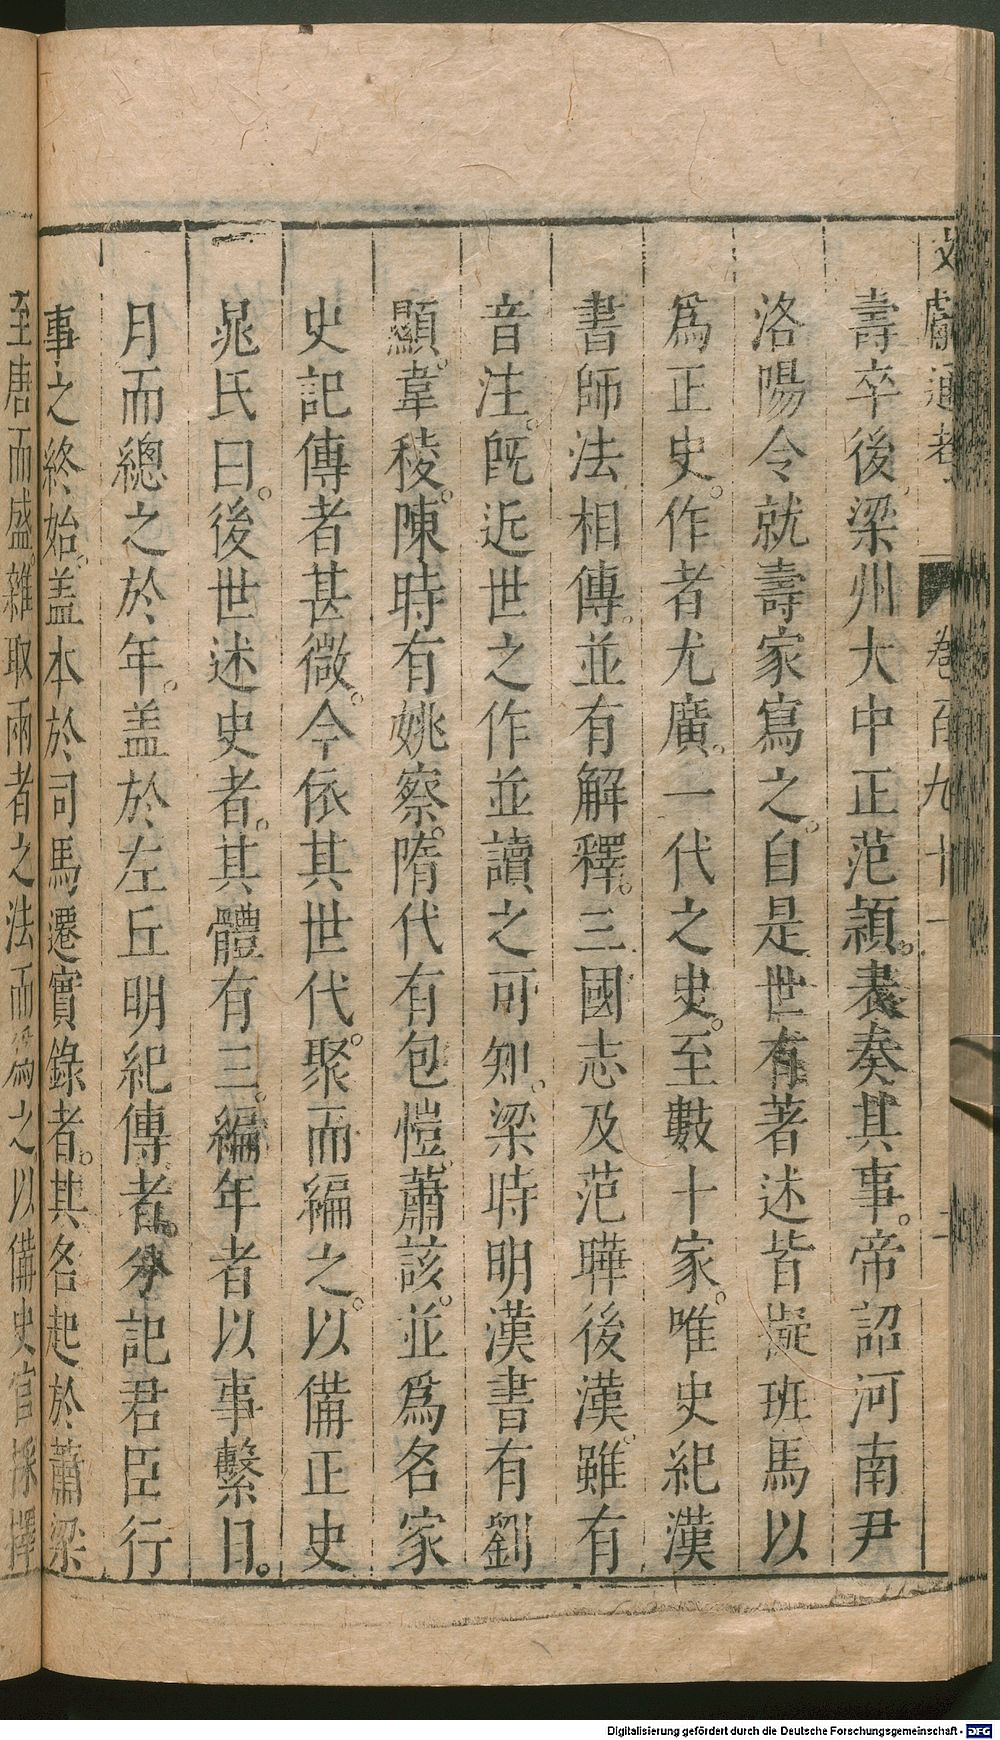 文獻通考 卷百九十一
壽卒後梁州大中正范頵。表奏其事。帝詔河南尹
洛陽令就壽家寫之。自是世有著述皆擬班馬以
爲正史。作者尤廣。一代之史。至數十家。唯史紀漢
書師法相傳。並有解釋。三國志及范曄後漢。雖有
音注。既近世之作並讀之可知。梁時明漢書有劉
顯。韋稜。陳時有姚察。隋代有包愷。蕭該。並爲名家
史記傳者甚微。今依其世代。聚而編之。以備正史
晁氏曰。後世述史者。其體有三。編年者以事繫日。
月而總之於年。盖於左丘明紀傳者。分記君臣行
事之終始。盖本於司馬遷實錄者。其名起於蕭梁
至唐而盛。雜取兩者之法而爲之以備史官採擇
Digitalisierung gefördert durch die Deutsche Forschungsgemeinschaft - DFG